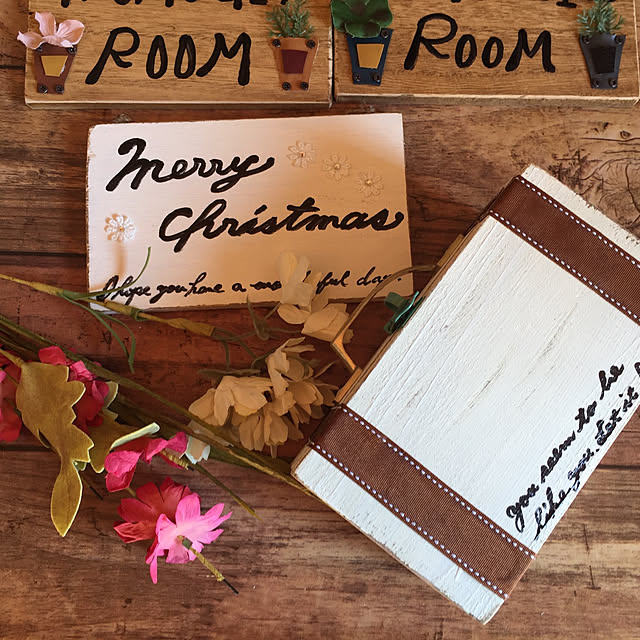 ROOM
ROOM
Merry
Christmas
I hope you have a ful day.
you seem to be
like you. Let it